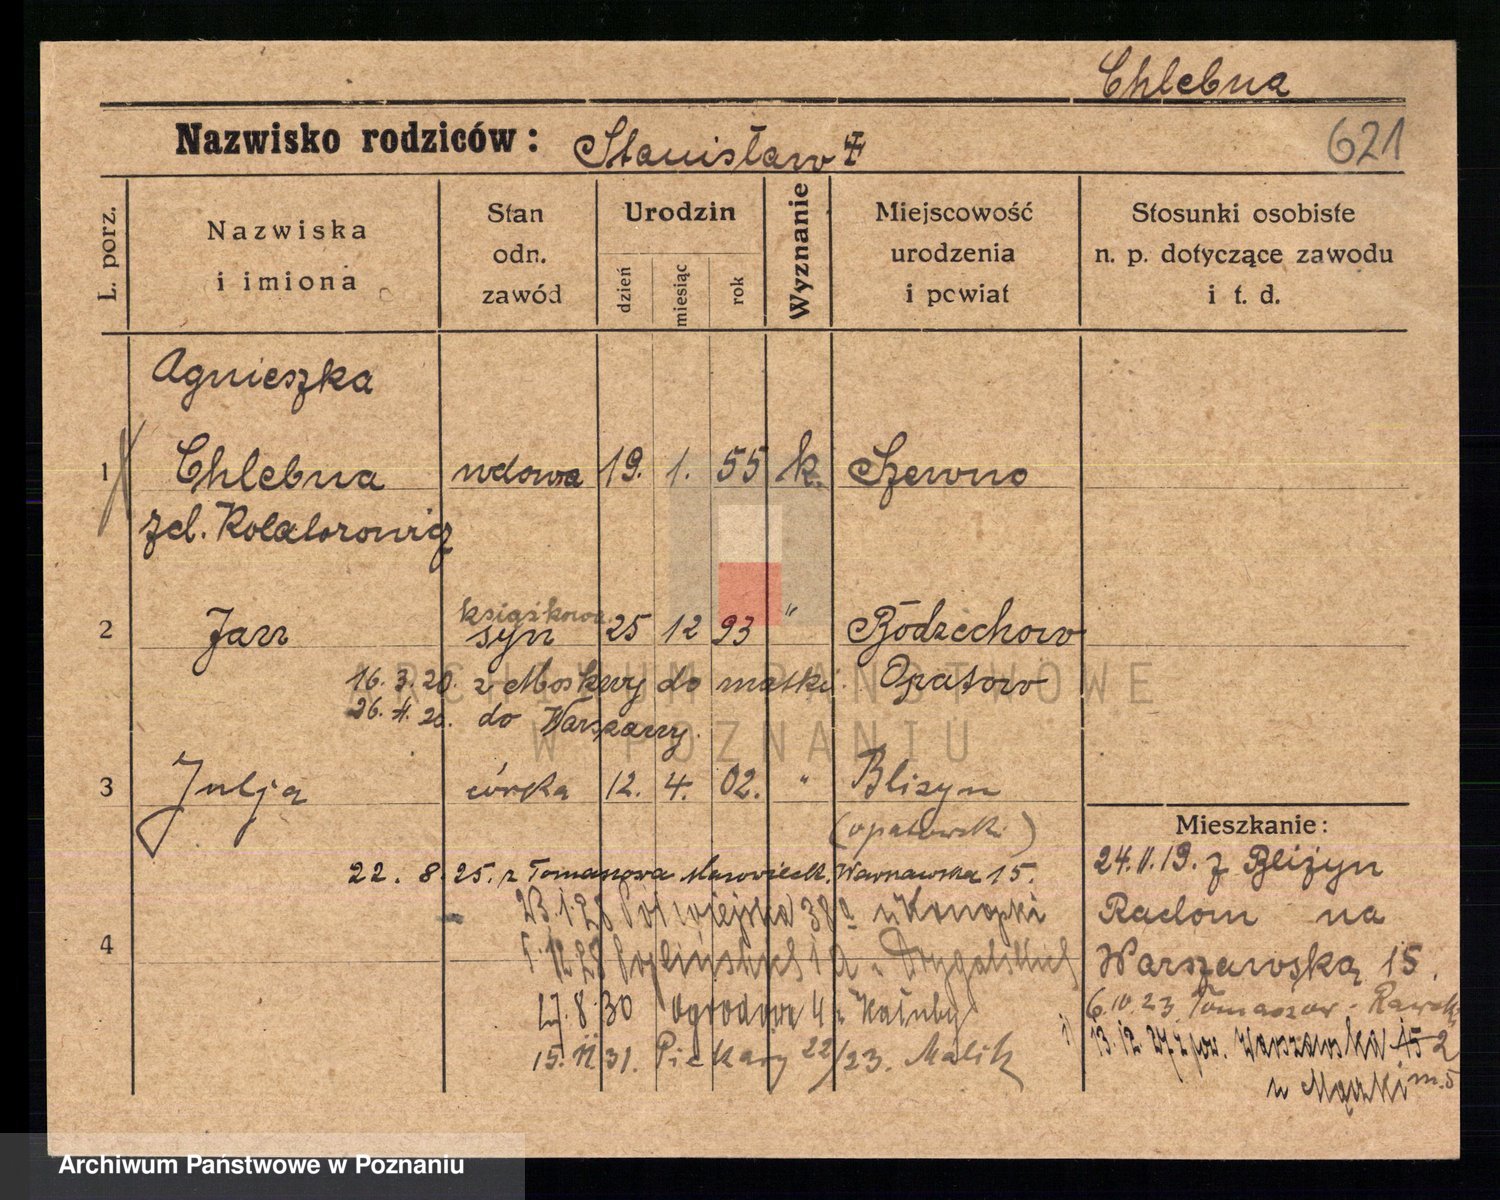 Chlebna
Nazwisko rodziców: Stanisław
621
L. porz.
Nazwiska
i imiona
Stan
odn.
zawód
Urodzin
dzień
miesiąc
rok
Wyznanie
Miejscowość
urodzenia
i powiat
Stosunki osobiste
n. p. dotyczące zawodu
i t. d.
Agnieszka
1 Chlebna wdowa 19. 1. 55 k. Szewno
książkowa
2 Jan syn 25 12 93 " Bodzechow
16. 3. 20. z Moskwy do matki. Opatow
26. 4. 20. do Warszawy.
3 Julja córka 12. 4. 02. " Blizyn
(opatowski)
Mieszkanie:
22. 8. 25. z Tomaszowa Mazowieck. Warszawska 15.
24.II.19. z Bliżyn
23.1.28 Półwiejska 38a u Konopki
Radom na
4
Warszawską 15.
27.8.30 Ogrodowa 4 u Kałuby
6.IV.23 Tomaszow-Rawski
15.II.31. Piekary 22/23. Malik
13.12.27 z pow. Warszawska 15 2
m.5
ARCHIWUM PAŃSTWOWE
W POZNANIU
Archiwum Państwowe w Poznaniu